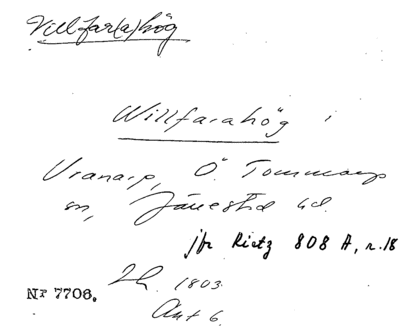 Villfar(a)hög
Willfarahög i
Vranarp, Ö. Tommarp
sn, Järrestad hd.
jfr Rietz 808 A, r. 18
1803.
Nr 7706.
Ant 6.